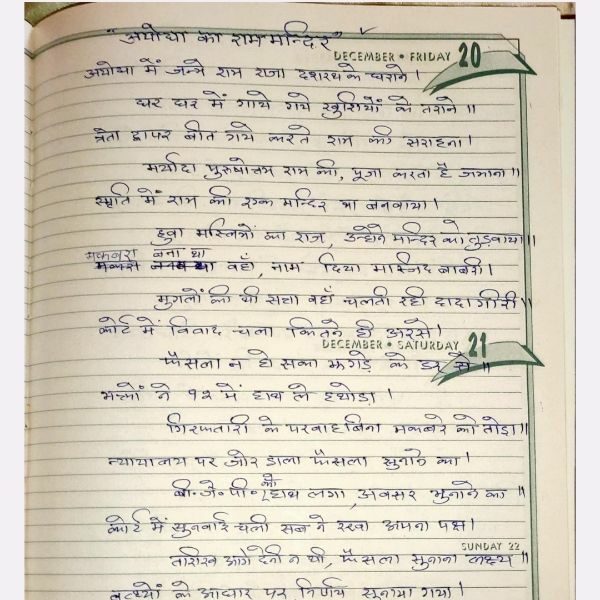 "अयोध्या का राम मन्दिर"
DECEMBER • FRIDAY 20
अयोध्या में जन्मे राम राजा दशरथ के घराने।
घर घर में गाये गये खुशियों के तराने॥
त्रेता द्वापर बीत गये करते राम की सराहना।
मर्यादा पुरुषोत्तम राम की, पूजा करता है जमाना॥
स्मृति में राम की एक मन्दिर था बनवाया।
हुवा मस्लिमों का राज, उन्होंने मन्दिर को तुड़वाया॥
मकबरा बना था
वहाँ, नाम दिया मस्जिद बाबरी।
मुगलों की थी सत्ता वहाँ चलती रही दादागीरी॥
कोर्ट में विवाद चला कितने ही अरसे।
DECEMBER • SATURDAY 21
फैसला न हो सका झगड़े के डर से॥
भक्तों ने ९२ में हाथ ले हथोड़ा।
गिरफतारी के परवाह बिना मकबरे को तोड़ा॥
न्यायालय पर जोर डाला फैसला सुनाने का।
को
बी.जे.पी. हाथ लगा, अवसर भुनाने का॥
कोर्ट में सुनवाई चली सब ने रखा अपना पक्ष।
SUNDAY 22
तारिख आगे देनी न थी, फैसला सुनाना लक्ष्य॥
के आधार पर निर्णय सुनाया गया।